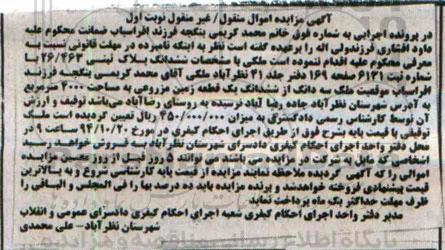 آگهی مزایده اموال منقول / غیر منقول نوبت اول
در پرونده اجرایی به شماره فوق خانم محمد کریمی ینگجه فرزند افراسیاب ضمانت محکوم علیه
داود افشاری فرزندولی اله را برعهده گفته است نظر به اینکه نامبرده در مهلت قانونی نسبت به
معرفی محکوم علیه اقدام ننموده است ملکی با مشخصات ششدانگ پلاک ثبتی ۲۶/۴۶۳ با
شماره ثبت ۶۱۳۱ صفحه ۱۶۹ دفتر جلد ۳۱ نظرآباد ملکی آقای محمد کریمی ینگجه فرزند
افراسیاب موقعیت ملک سه دانگ از ششدانگ یک قطعه زمین مزروعی به مساحت ۲۰۰۰ مترمربع
به آدرس شهرستان نظرآباد جاده رضا آباد نرسیده به روستای رضاآباد می‌باشد توقیف و ارزش
آن توسط کارشناس رسمی دادگستری به میزان ۴۵۰/۰۰۰/۰۰۰ ریال تعیین گردیده است ملک
توقیفی با قیمت پایه بشرح فوق از طریق اجرای احکام کیفری در مورخ ۹۴/۱۰/۲۰ ساعت ۹ در
محل دفتر واحد اجرای احکام کیفری دادسرای شهرستان نظرآباد به فروش خواهد رسید
اشخاصی که مایل به شرکت در مزایده می باشند می توانند ۵ روز قبل از روز تعیین مزایده
اموالی را که آگهی گردیده ملاحظه نمایند مزایده از قیمت پایه کارشناسی شروع و به بالاترین
قیمت پیشنهادی فروخته خواهدشد و برنده مزایده باید ده درصد بها را فی المجلس و الباقی را
ظرف مهلت حداکثر یک ماه پرداخت نماید
مدیر دفتر واحد اجرای احکام کیفری شعبه اجرای احکام کیفری دادسرای عمومی و انقلاب
شهرستان نظرآباد– علی محمدی